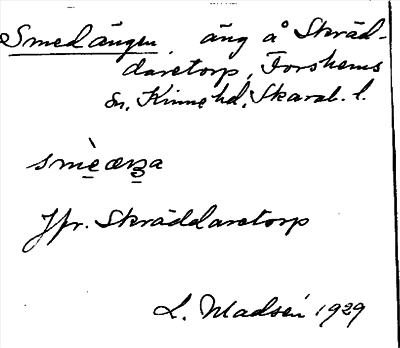 Smedängen, äng å Skräd-
daretorp, Forshems
sn, Kinne hd, Skarab. l.
Jfr. Skräddaretorp
L. Madsén 1929